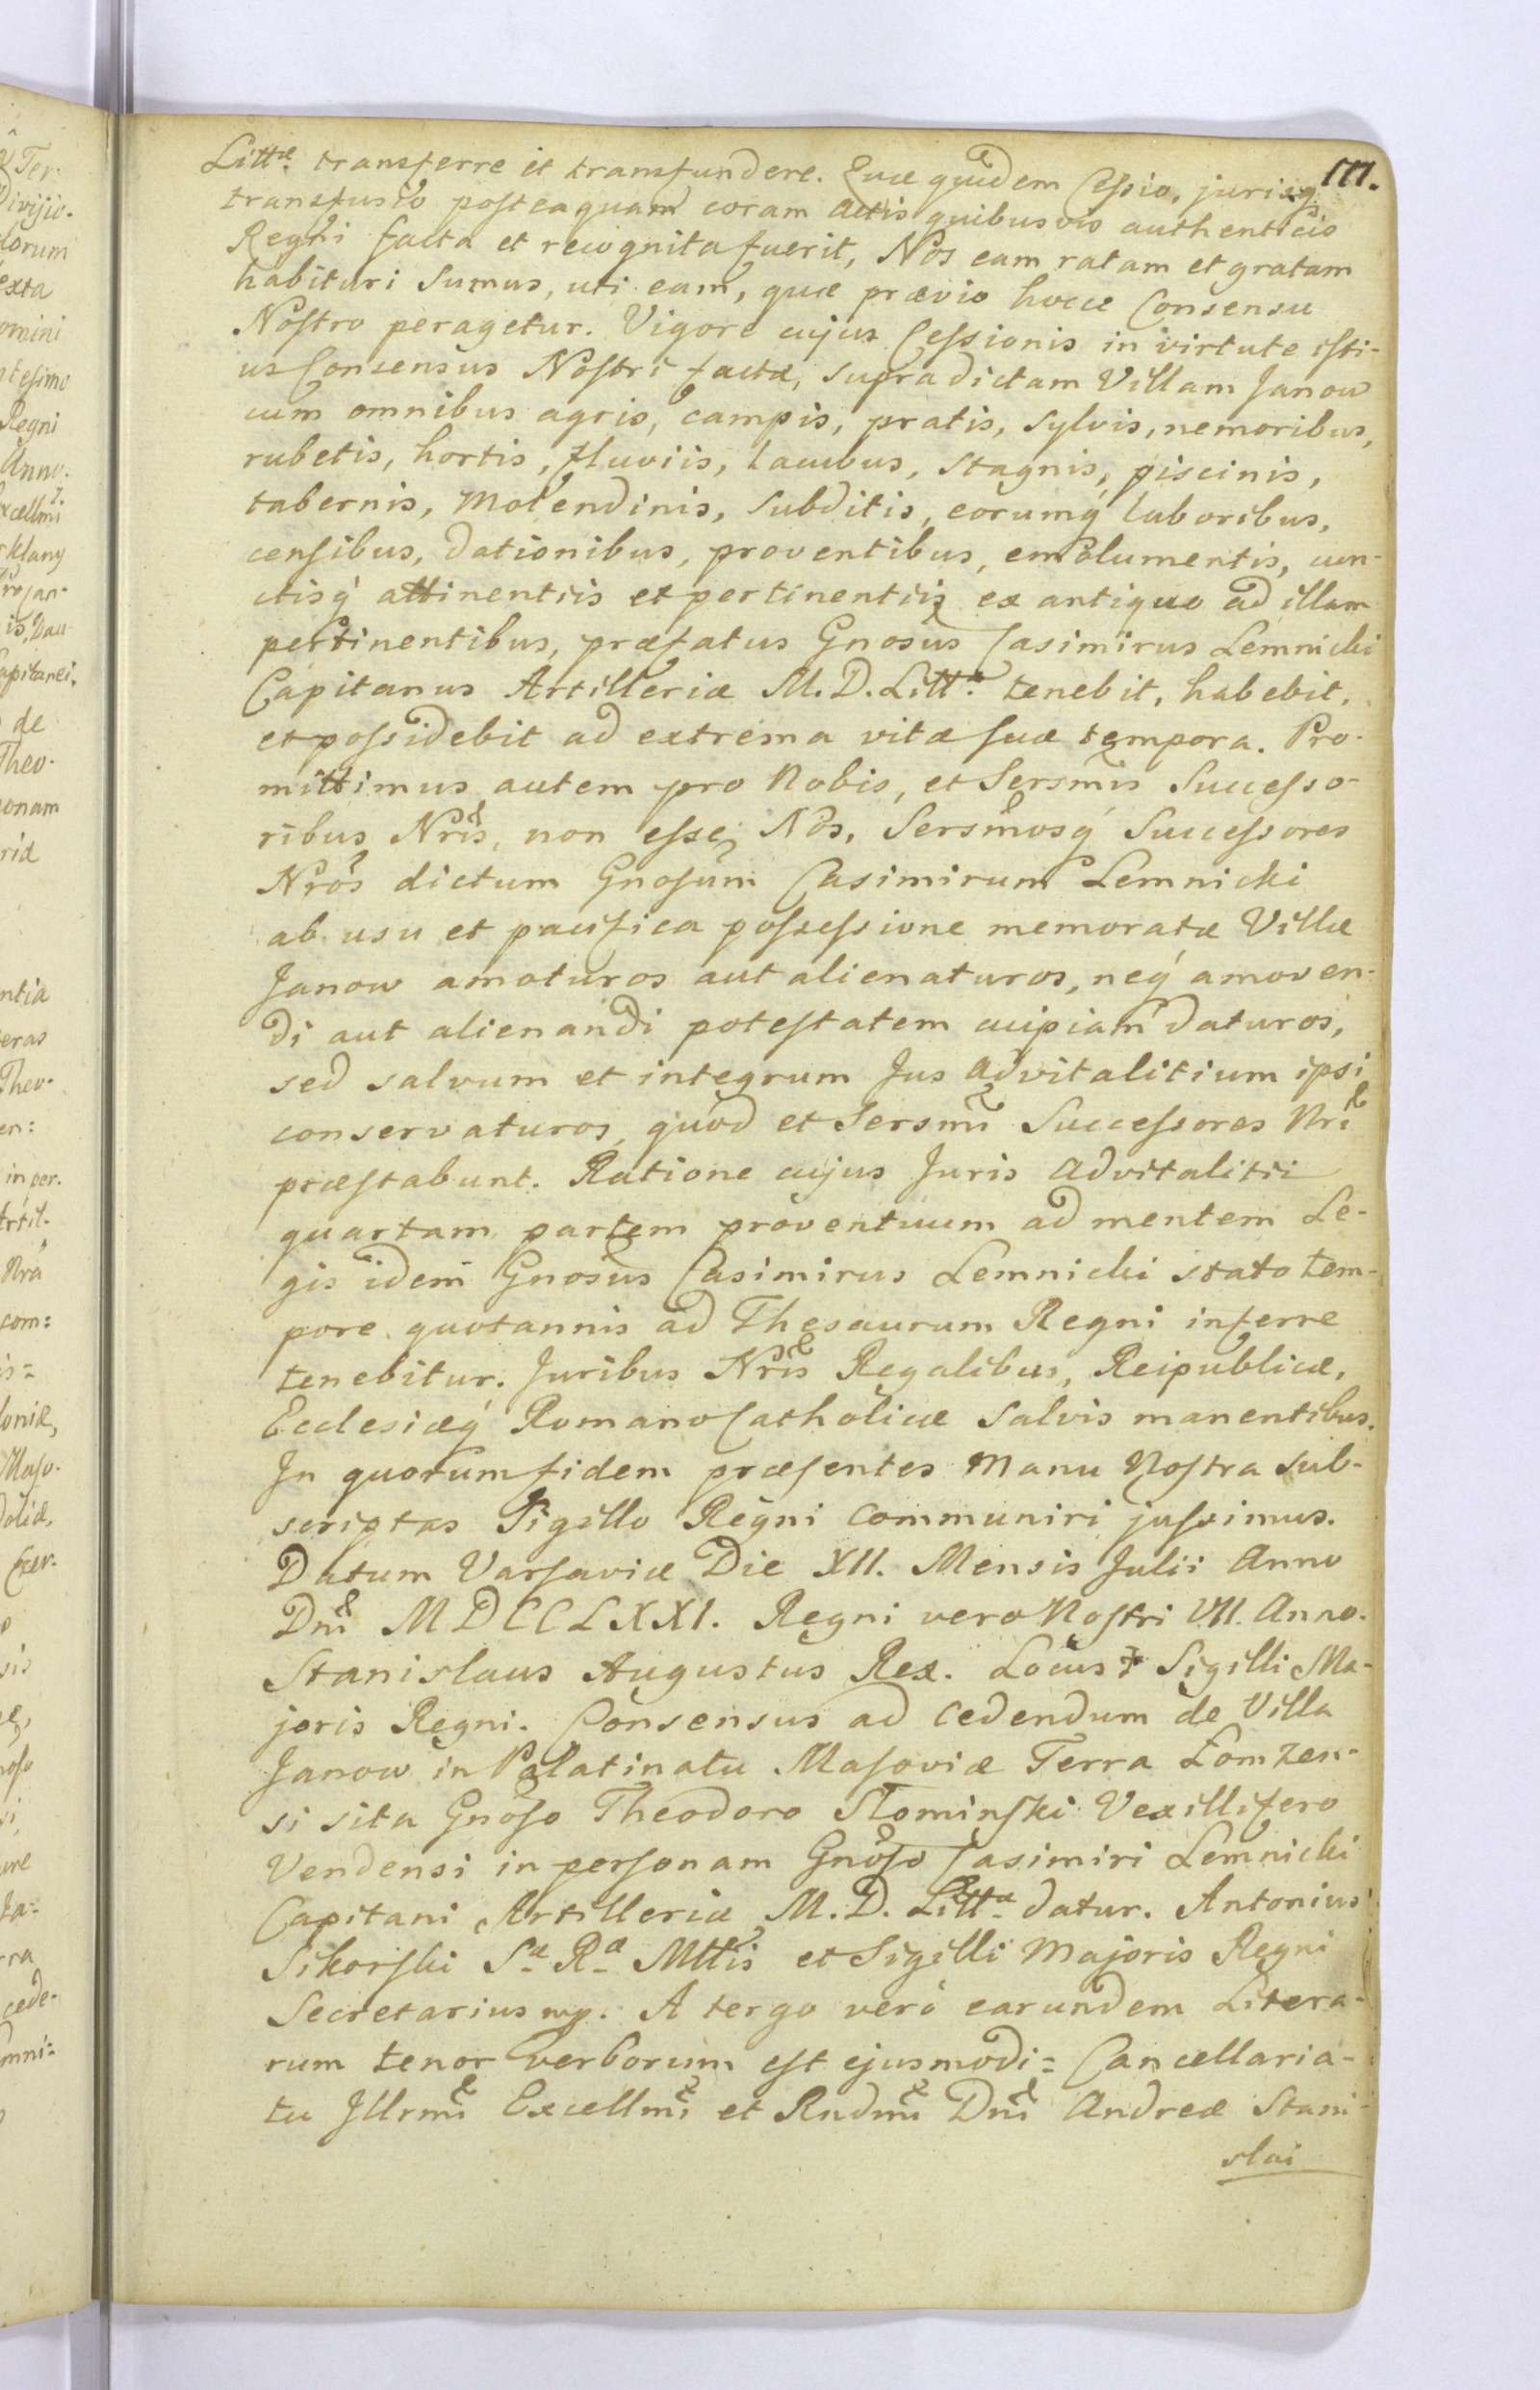 111.
Littæ transferre et transfundere. Quæ quidem Cessio, jurisq́
transfusio posteaquam coram Actis quibusvis authenticis
Regni facta et recognita fuerit, Nos eam ratam et gratam
habituri sumus, uti eam, quæ prævio hocce Consensu
Nostro peragetur. Vigore cujus Cessionis in virtute isti-
us Consensus Nostri factæ, supradictam Villam Janow
cum omnibus agris, campis, pratis, sylvis, nemoribus,
rubetis, hortis, fluviis, lacubus, stagnis, piscinis,
tabernis, molendinis, subditis, eorumq́ laboribus,
censibus, dationibus, proventibus, emolumentis, cun-
ctisq́ attinentiis et pertinentiis ex antiquo ad illam
pertinentibus, præfatus Gnosus Casimirus Lemnicki
Capitanus Artilleriæ M. D. Littæ tenebit, habebit,
et possidebit ad extrema vitæ suæ tempora. Pro-
mittimus autem pro Nobis, et Sersmis Successo-
ribus Nris, non esse Nos, Sersmosq́ Successores
Nros dictum Gnosum Casimirum Lemnicki
ab usu et pacifica possessione memoratæ Villæ
Janow amoturos aut alienaturos, neq́ amoven-
di aut alienandi potestatem cuipiam daturos,
sed salvum et integrum Jus advitalitium ipsi
conservaturos, quod et Sersmi Successores Nri
præstabunt. Ratione cujus Juris advitalitii
quartam partem proventuum ad mentem Le-
gis idem Gnosus Casimirus Lemnicki stato tem-
pore quotannis ad Thesaurum Regni inferre
tenebitur. Juribus Nris Regalibus, Reipublicæ,
Ecclesiæq́ Romano Catholicæ salvis manentibus.
In quorum fidem præsentes Manu Nostra sub-
scriptas Sigillo Regni communiri jussimus.
Datum Varsaviæ Die XII. Mensis Julii Anno
Dni MDCCLXXI. Regni vero Nostri VII. Anno.
Stanislaus Augustus Rex. Locus ✝ Sigilli Ma-
joris Regni. Consensus ad cedendum de Villa
Janow in Palatinatu Masoviæ Terra Łomzen-
si sita Gnoso Theodoro Słominski Vexillifero
Vendensi in personam Gnoso Casimiri Lemnicki
Capitani Artilleriæ M. D. Littæ datur. Antonius
Sikorski Sæ Ræ Mttis et Sigilli Majoris Regni
Secretarius mp. A tergo verò earundem Litera-
rum tenor verborum est ejusmodi = Cancellaria-
tu Illrmi Excellmi et Rndmi Dni Andreæ Stani-
slai